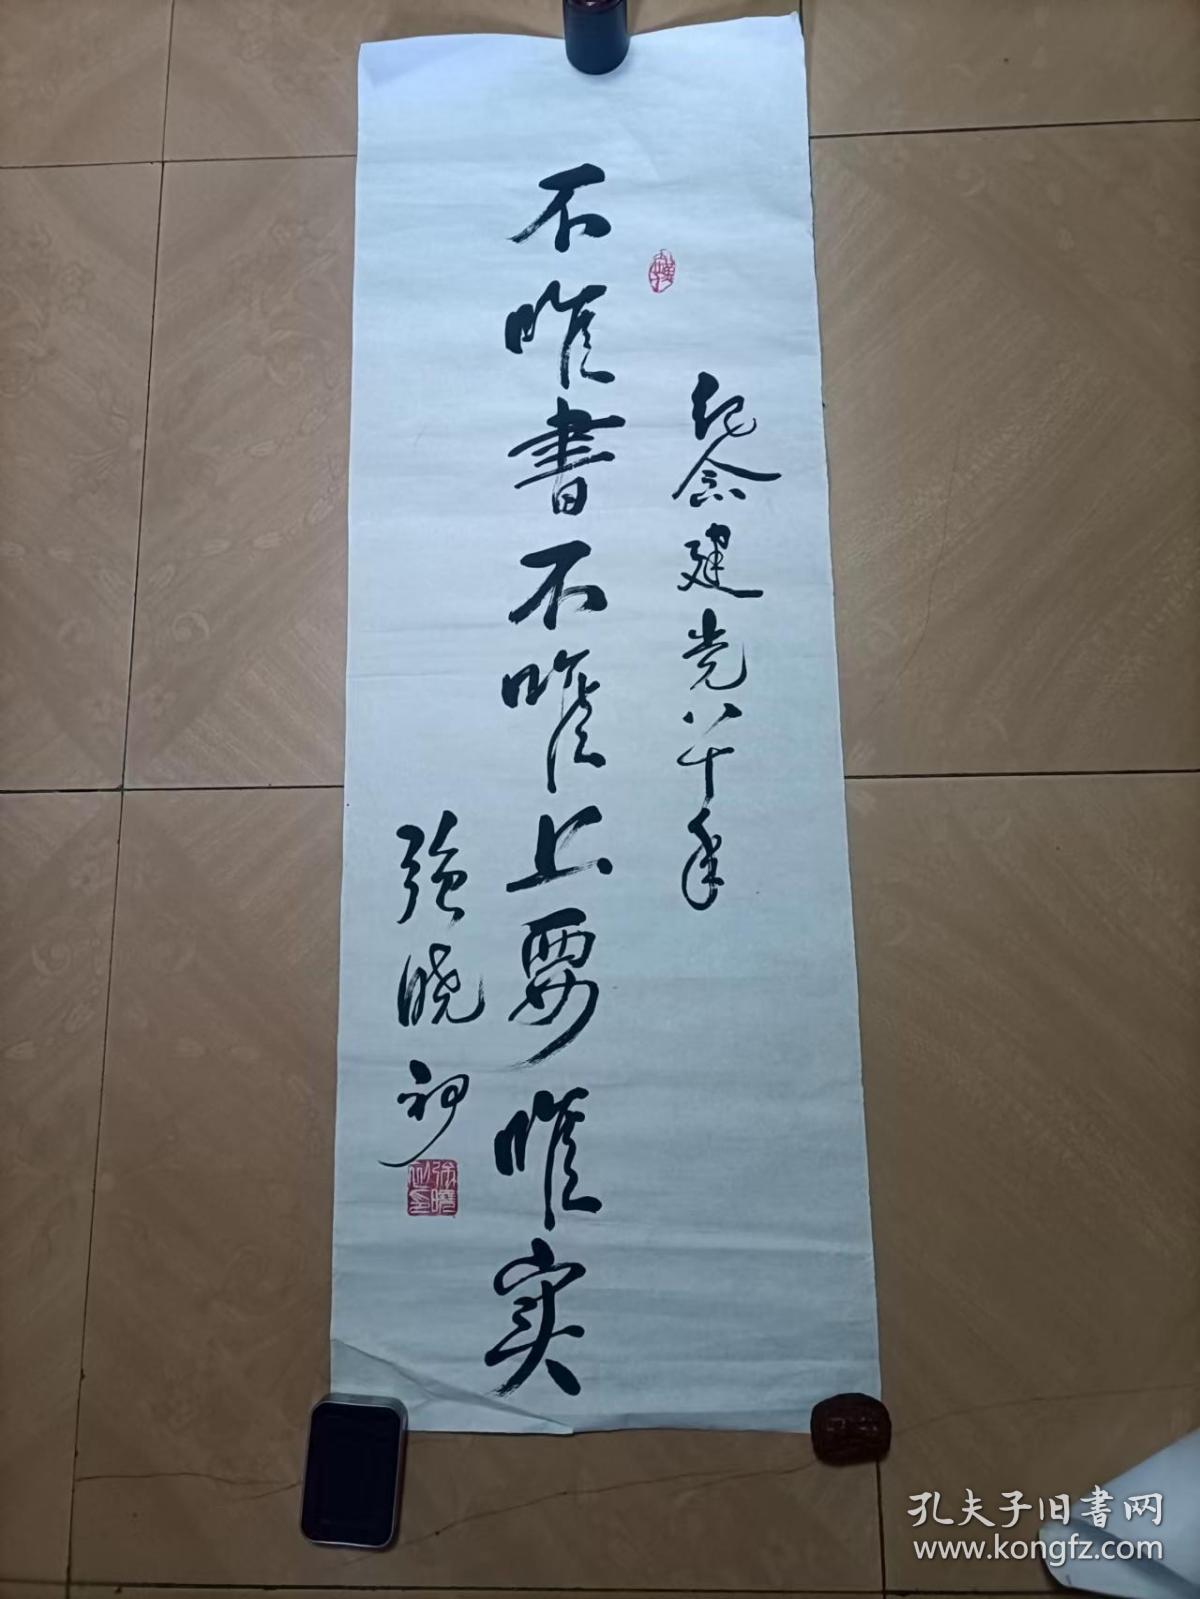 纪念建党八十年
不唯書不唯上要唯实
强晓初
孔夫子旧书网
www.kongfz.com